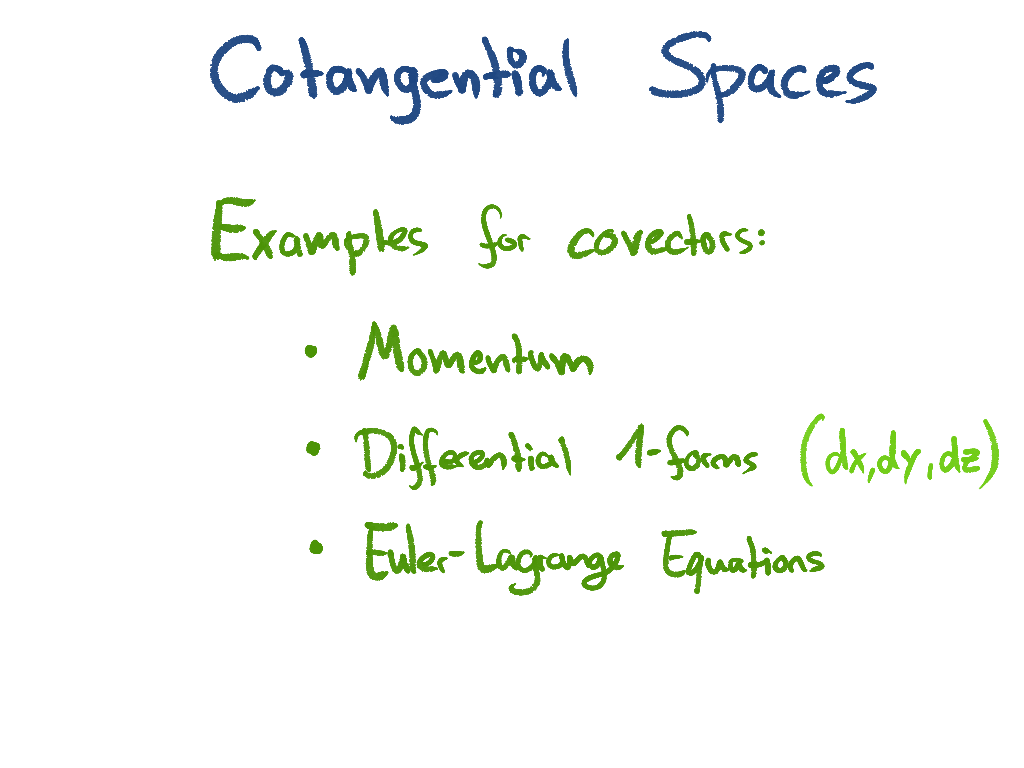 Cotangential Spaces
Examples for covectors:
• Momentum
• Differential 1-forms (dx, dy, dz)
• Euler-Lagrange Equations